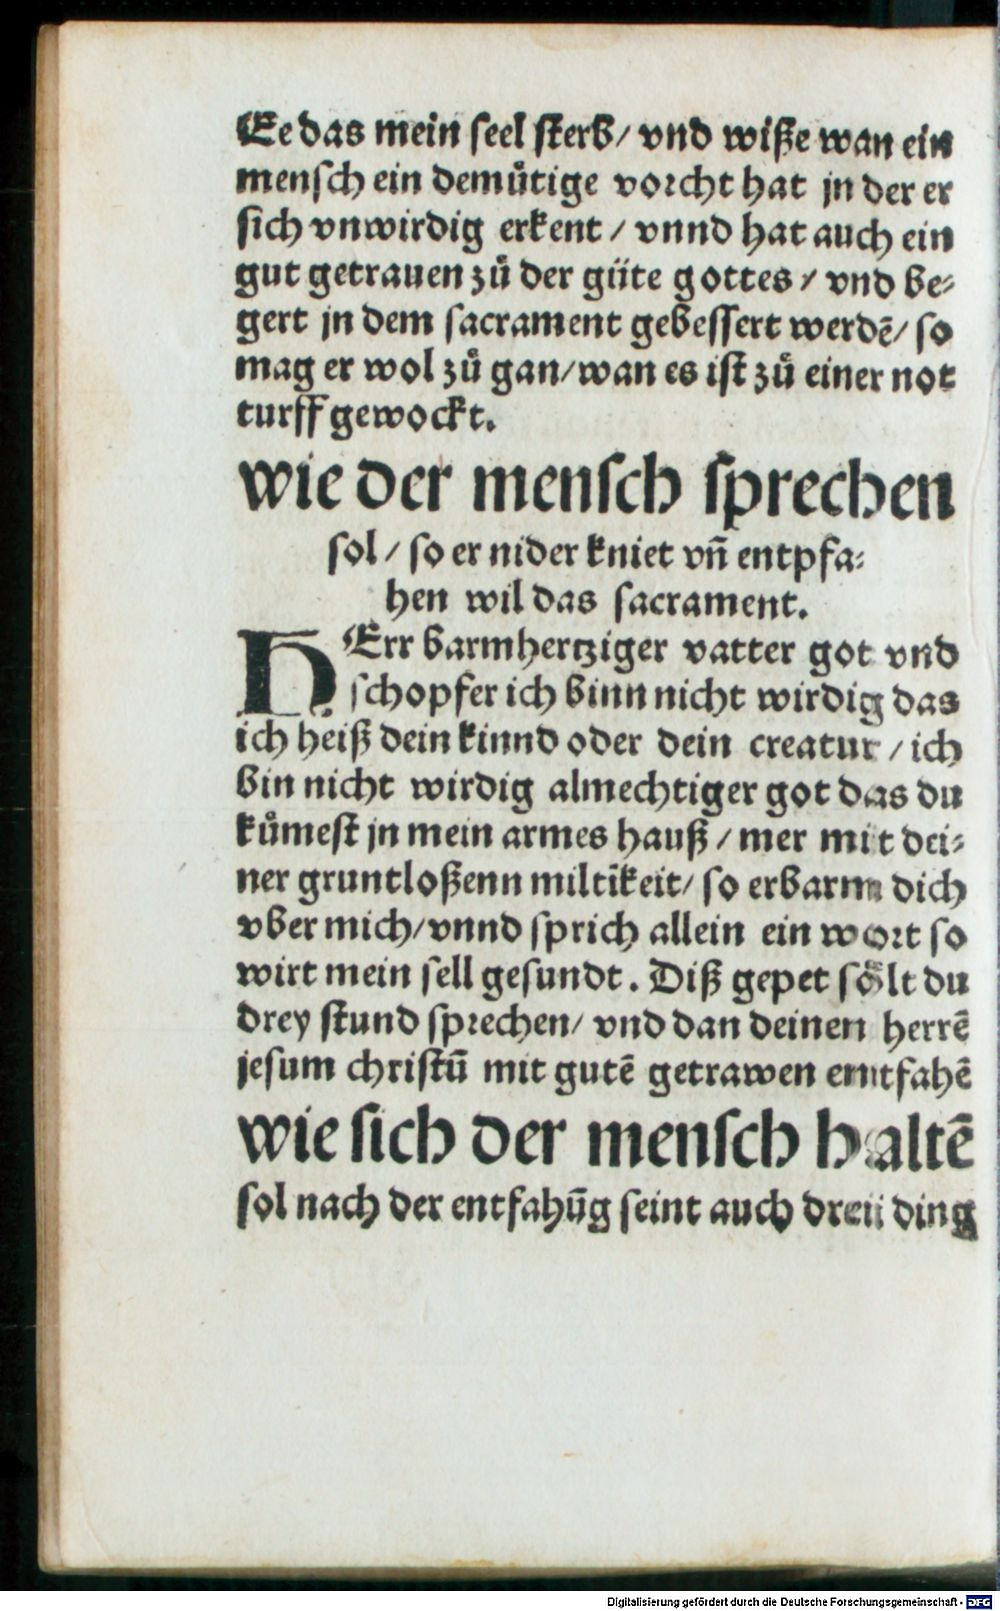 Ee das mein seel sterb/ vnd wiße wan ein
mensch ein demuͤtige vorcht hat jn der er
sich vnwirdig erkent / vnnd hat auch ein
gut getrauen zuͦ der guͤte gottes / vnd be⸗
gert jn dem sacrament gebessert werdē/ so
mag er wol zuͦ gan/wan es ist zuͦ einer not
turff gewockt.
wie der mensch sprechen
sol / so er nider kniet vñ entpfa⸗
hen wil das sacrament.
HErr barmhertziger vatter got vnd
schopfer ich binn nicht wirdig das
ich heiß dein kinnd oder dein creatur / ich
bin nicht wirdig almechtiger got das du
kuͤmest jn mein armes hauß / mer mit dei⸗
ner gruntloßenn miltikeit/ so erbarm dich
vber mich/vnnd sprich allein ein wort so
wirt mein sell gesundt. Diß gepet soͤlt du
drey stund sprechen/ vnd dan deinen herrē
jesum christū mit gutē getrawen emtfahē
wie sich der mensch haltē
sol nach der entfahūg seint auch dreii ding
Digitalisierung gefördert durch die Deutsche Forschungsgemeinschaft - DFG